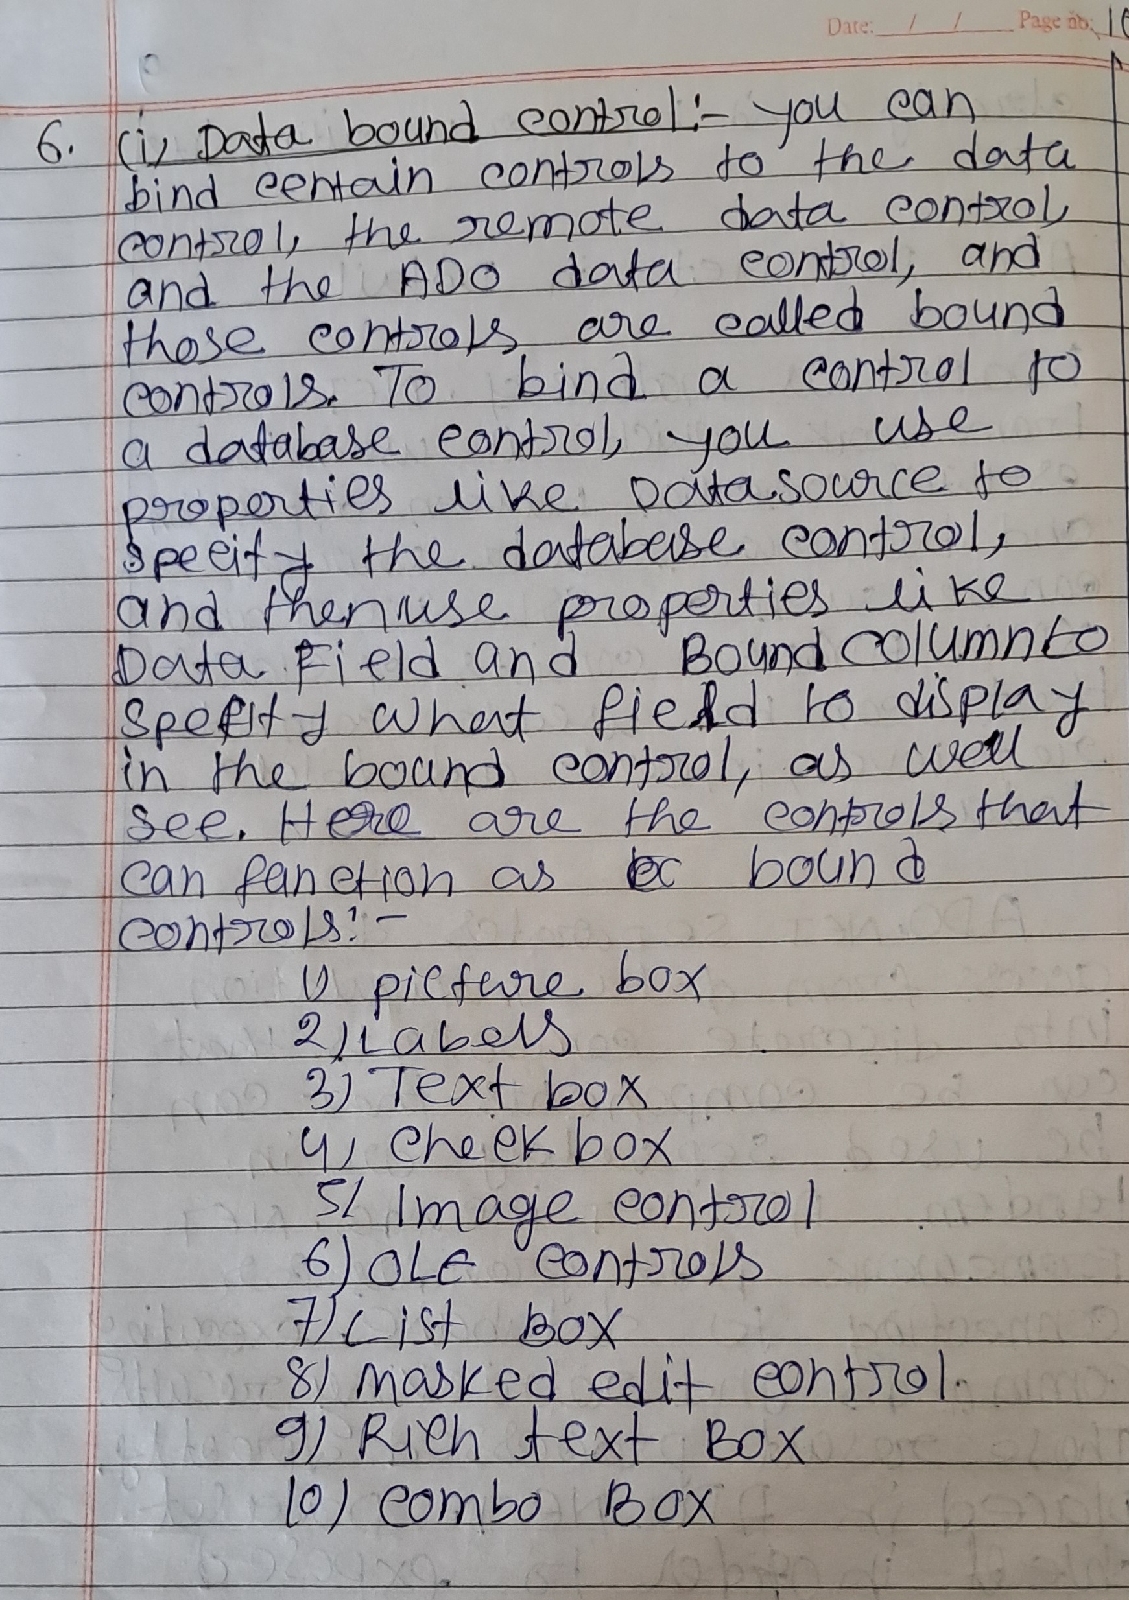 Date: / / Page nb: 10
6. (i) Data bound control:- you can
bind certain controls to the data
control, the remote data control,
and the ADO data control, and
those controls are called bound
controls. To bind a control to
a database control, you use
properties like Datasource to
specify the database control,
and then use properties like
Data Field and Bound column to
specify what field to display
in the bound control, as well
see. Here are the controls that
can fanction as bound
controls:-
1) picture box
2) Labels
3) Text box
4) check box
5) Image control
6) OLE controls
7) List Box
8) masked edit control.
9) Rich text Box
10) combo Box